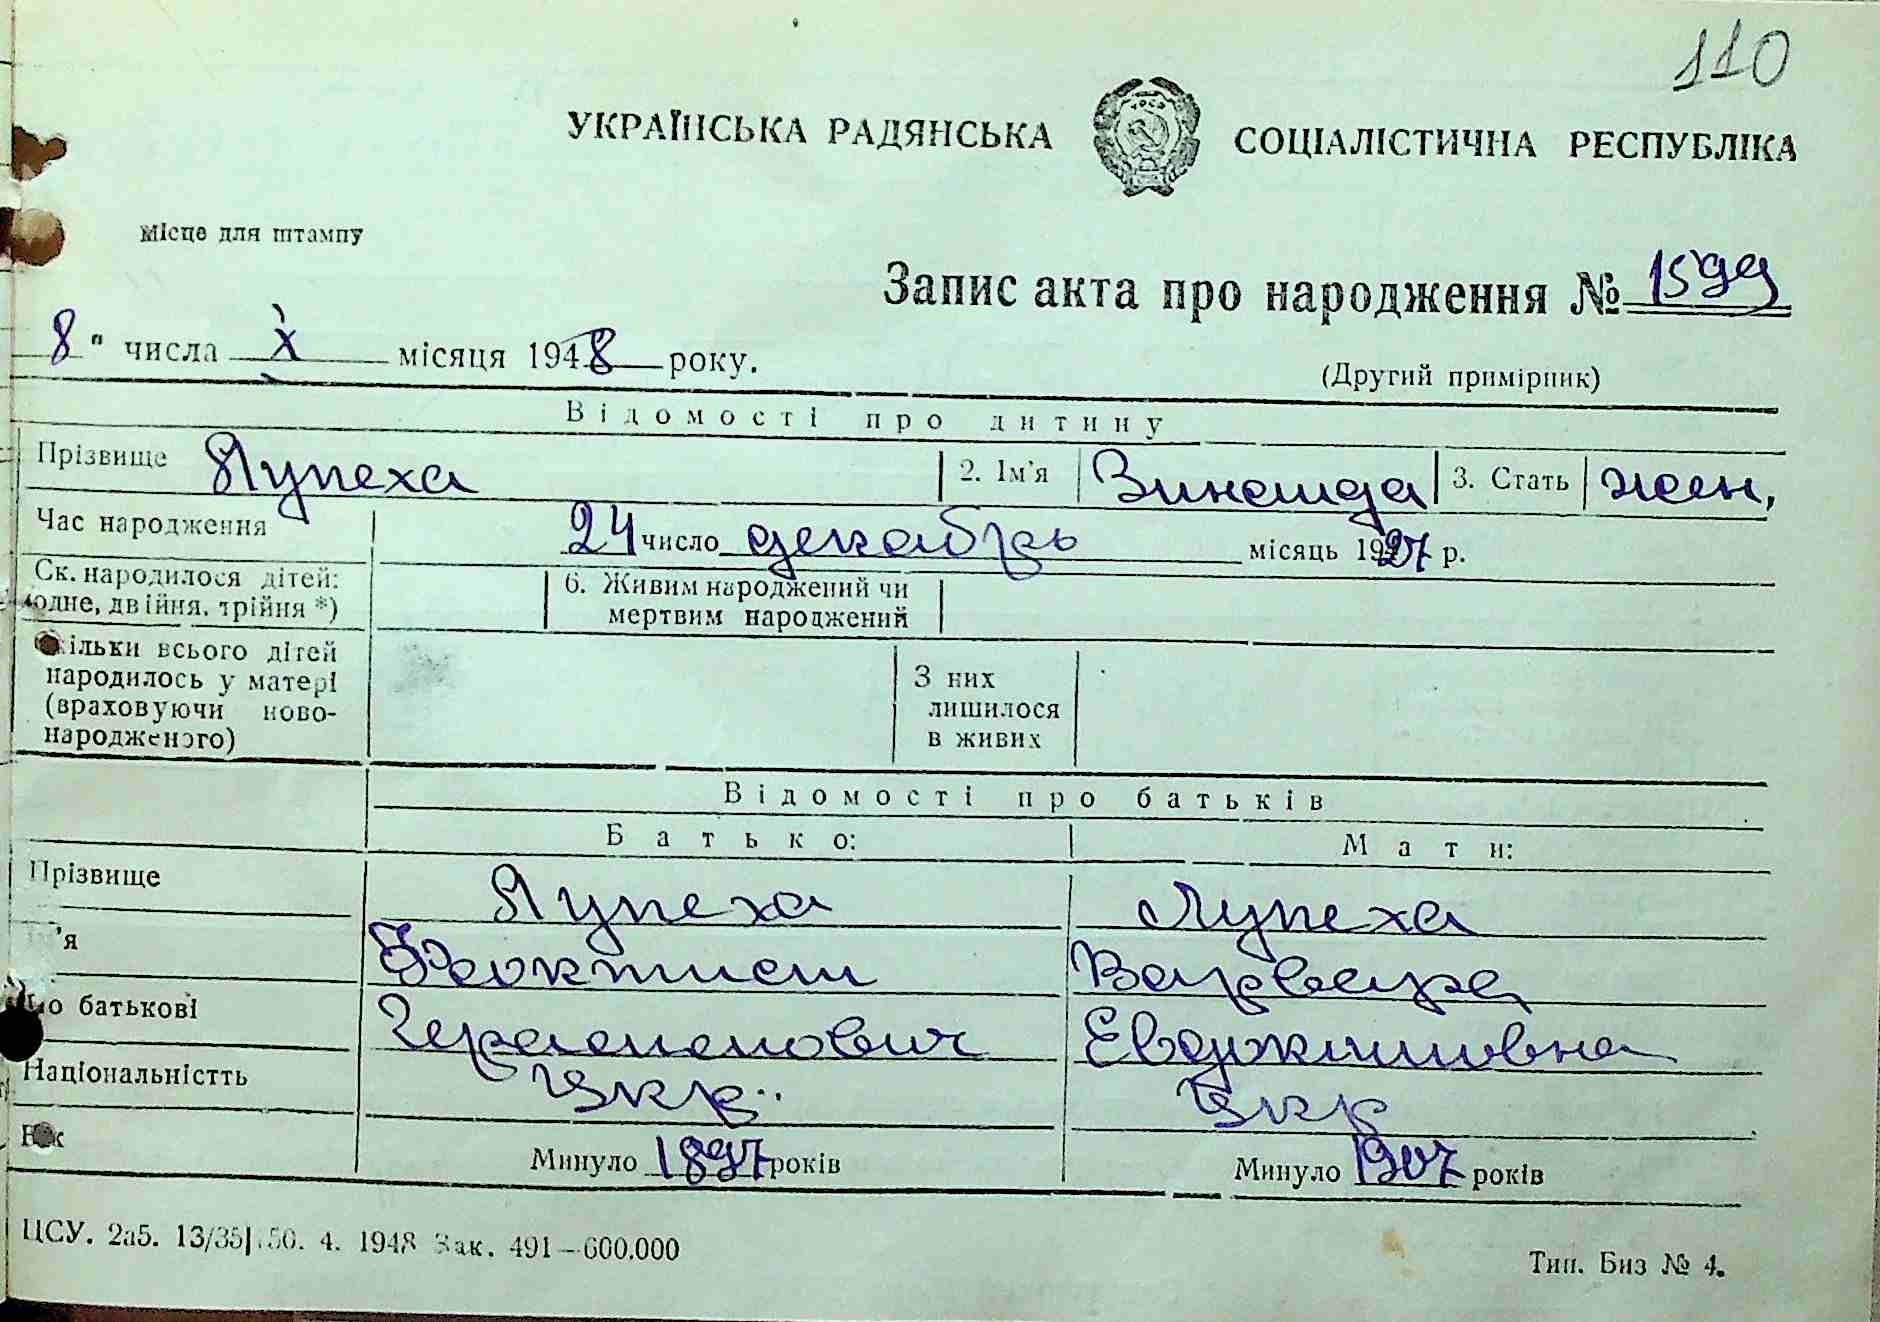 110
УКРАЇНСЬКА РАДЯНСЬКА СОЦІАЛІСТИЧНА РЕСПУБЛІКА
УРСР
Місце для штампу
Запис акта про народження № 1599
8 " числа X місяця 1948 року.
(Другий примірник)
Відомості про дитину
Прізвище Лупеха 2. Ім'я Зинаида 3. Стать жен,
Час народження 24 число декабрь місяць 1927 р.
Ск. народилося дітей: 6. Живим народжений чи
(одне, двійня, трійня *) мертвим народжений
кільки всього дітей З них
народилось у матері лишилося
(враховуючи ново- в живих
народженого)
Відомості про батьків
Батько: Мати:
Прізвище Лупеха Лупеха
'я Феоктист Варвара
о батькові Герасимович Евдокимовна
Національністть Укр. Укр
Вік Минуло 1897 років Минуло 1907 років
ЦСУ. 2а5. 13/35 .50. 4. 1948 Зак. 491—600.000
Тип. Биз № 4.